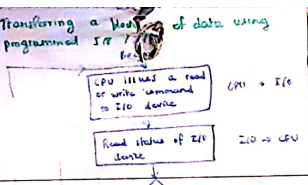 Transferring a block of data using
programmed I/O
CPU issues a read
or write command
to I/O device
CPU → I/O
Read status of I/O
device
I/O → CPU